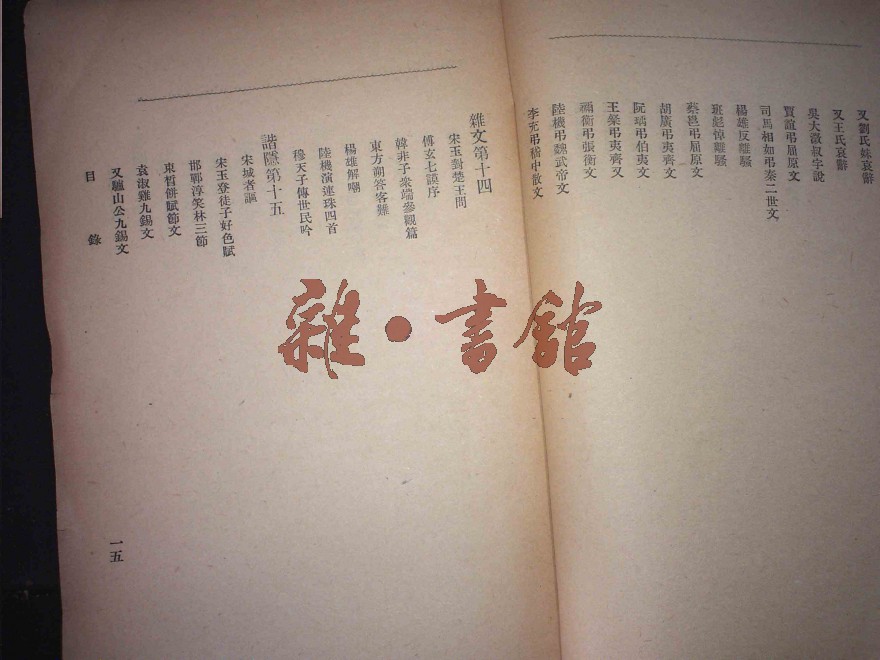 又劉氏妹哀辭
又王氏哀辭
吳大澂叔字說
賈誼弔屈原文
司馬相如弔秦二世文
楊雄反離騷
班彪悼離騷
蔡邕弔屈原文
胡廣弔夷齊文
阮瑀弔伯夷文
王粲弔夷齊文
禰衡弔張衡文
陸機弔魏武帝文
李充弔嵇中散文
雜文第十四
宋玉對楚王問
傅玄七謨序
韓非子衆端參觀篇
東方朔答客難
楊雄解嘲
陸機演連珠四首
穆天子傳世民吟
諧讔第十五
宋城者謳
宋玉登徒子好色賦
邯鄲淳笑林三節
束晳餅賦節文
袁淑雞九錫文
又驢山公九錫文
目錄
一五
雜•書館